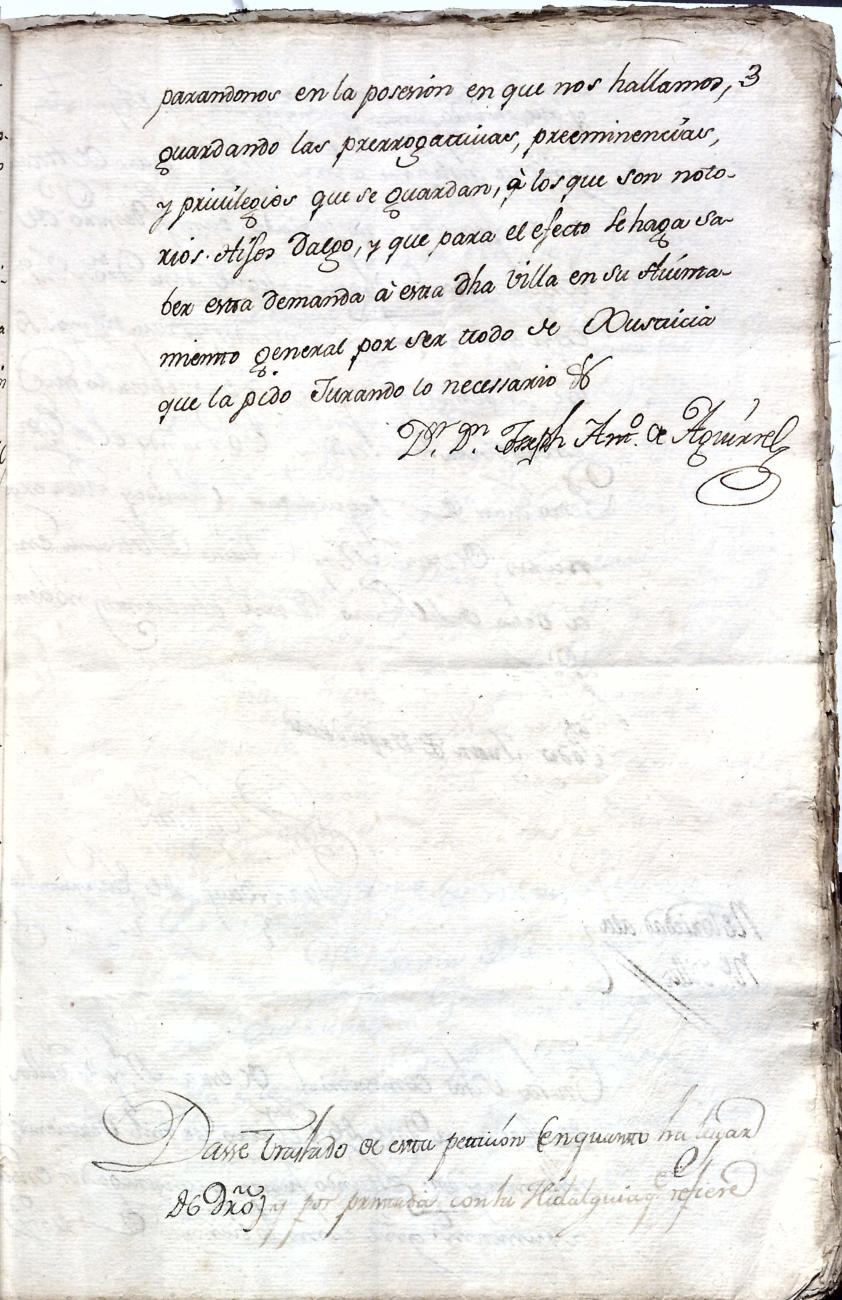 parandonos en la posesión en que nos hallamos, 3
guardando las prerrogativas, preeminencias,
y privilegios que se guardan, à los que son noto-
rios Hijos Dalgo, y que para el efecto se haga sa-
ber esta demanda à esta dha villa en su Aiunta-
miento general por ser todo de Justicia
que la pido Jurando lo necessario &
Dr. Dn. Joseph Anto. de Aguirre
Dasse traslado de esta peticion en quanto ha lugar
de dro, y por con la Hidalguia q refiere